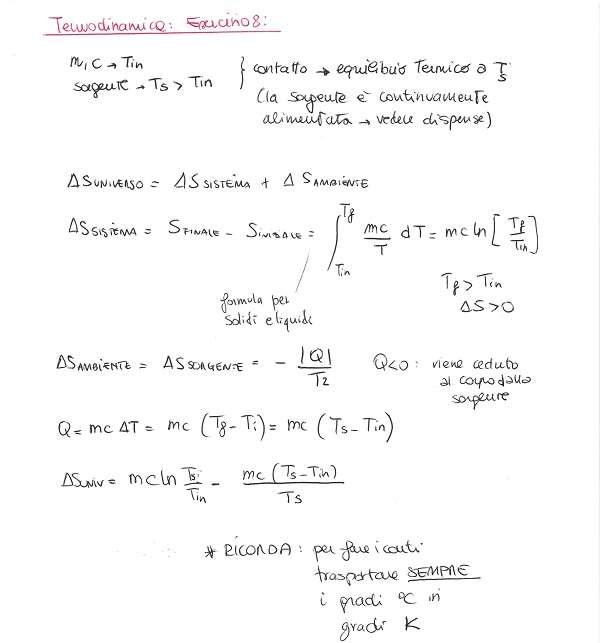 Termodinamica: Esercizio 8:
m, c → Tin } contatto → equilibrio Termico a Ts
sorgente → Ts > Tin (la sorgente è continuamente
alimentata → vedere dispense)
ΔSUNIVERSO = ΔSSISTEMA + ΔSAMBIENTE
ΔSSISTEMA = SFINALE - SINIZIALE = ∫ Tin Tf mc/T dT = mc ln [Tf/Tin]
formula per
solidi e liquidi
Tf > Tin
ΔS > 0
ΔSAMBIENTE = ΔSSORGENTE = - |Q|/T2 Q<0 : viene ceduto
al corpo dalla
sorgente
Q = mc ΔT = mc (Tf - Ti) = mc (Ts - Tin)
ΔSUNIV = mc ln Ts/Tin - mc (Ts - Tin)/Ts
* RICORDA : per fare i conti
trasportare SEMPRE
i gradi °C in
gradi K